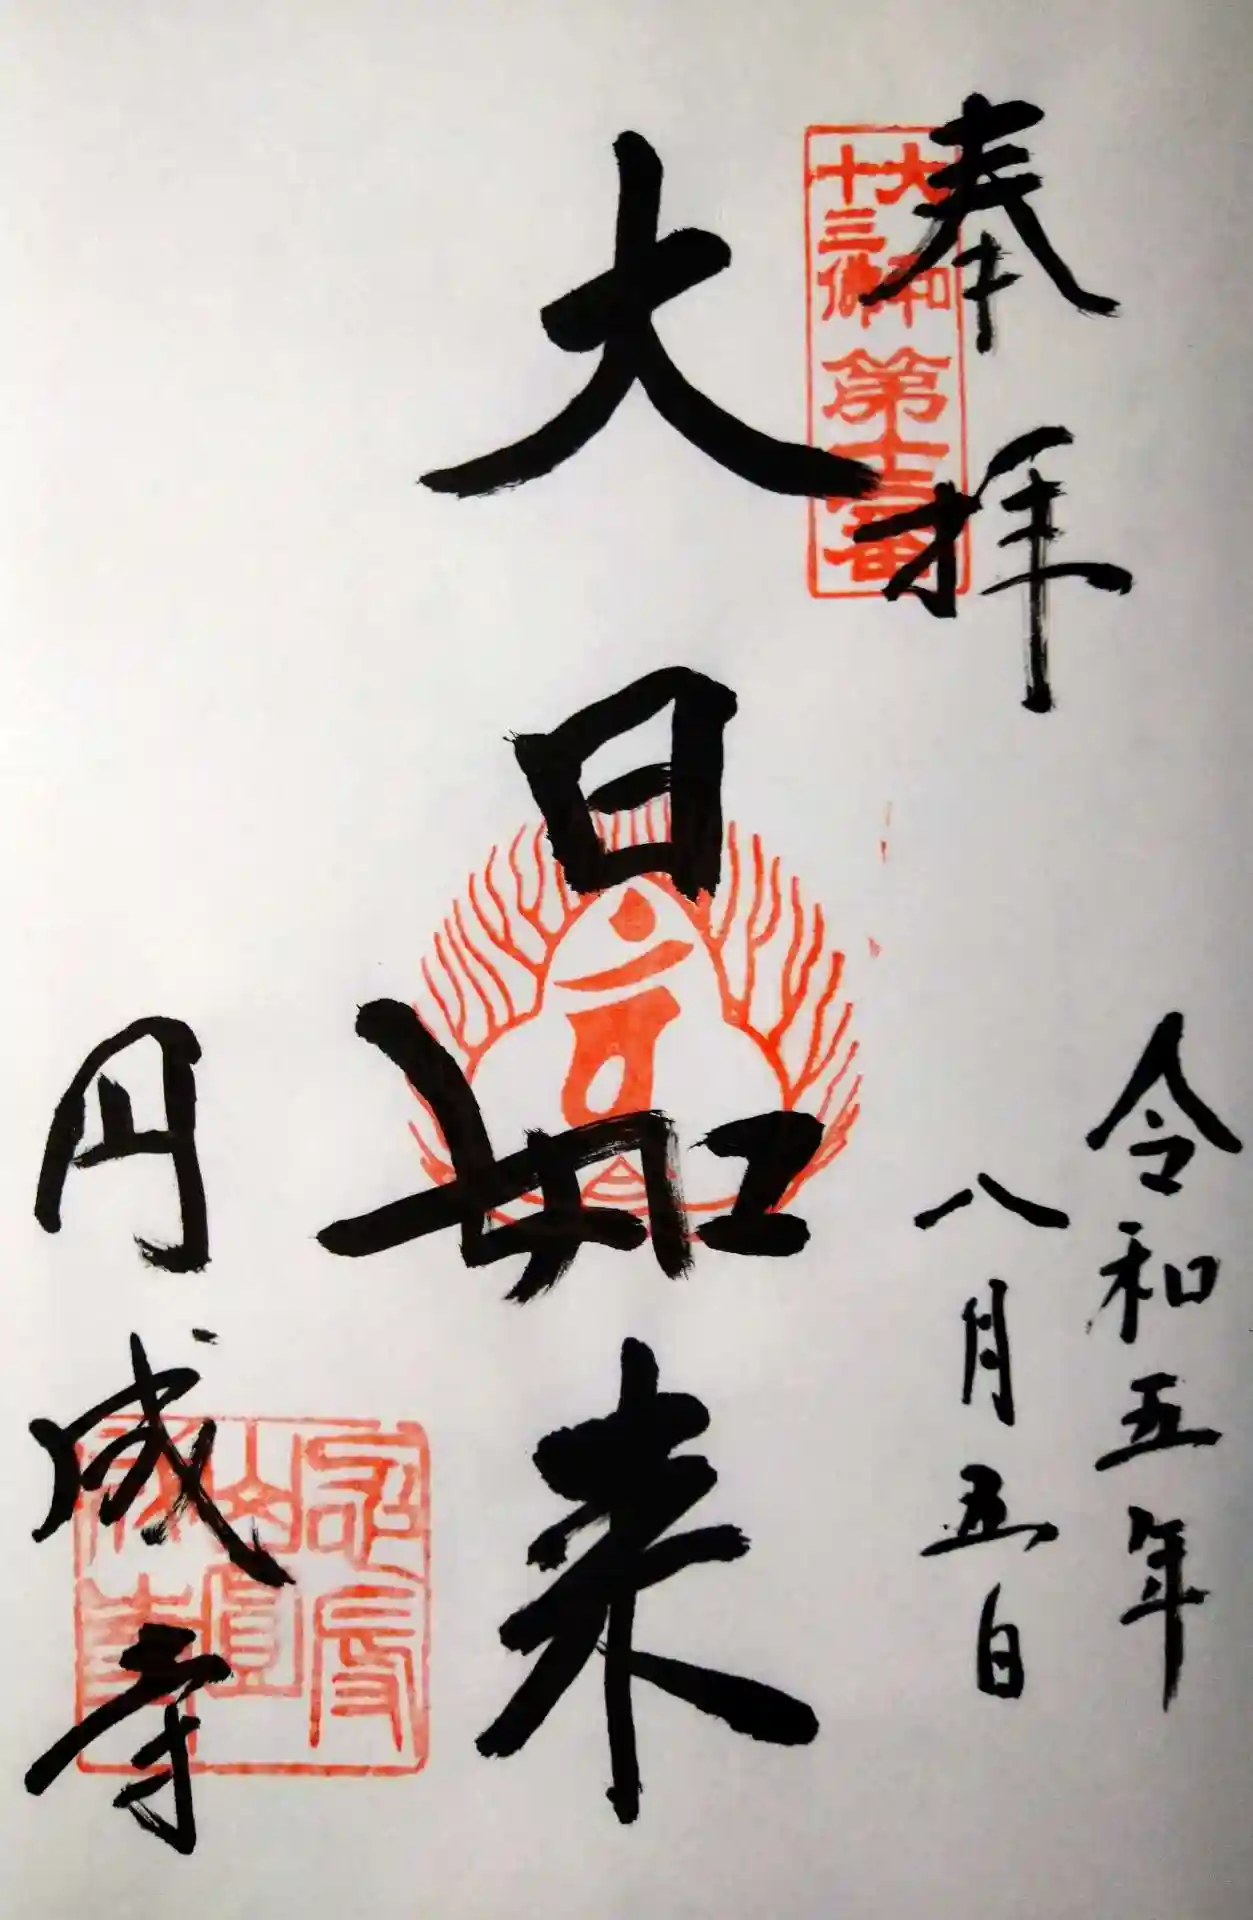 奉拝
大和
十三佛
第十二番
令和五年
八月五日
大日如来
円成寺
忍辱
山圓
成寺